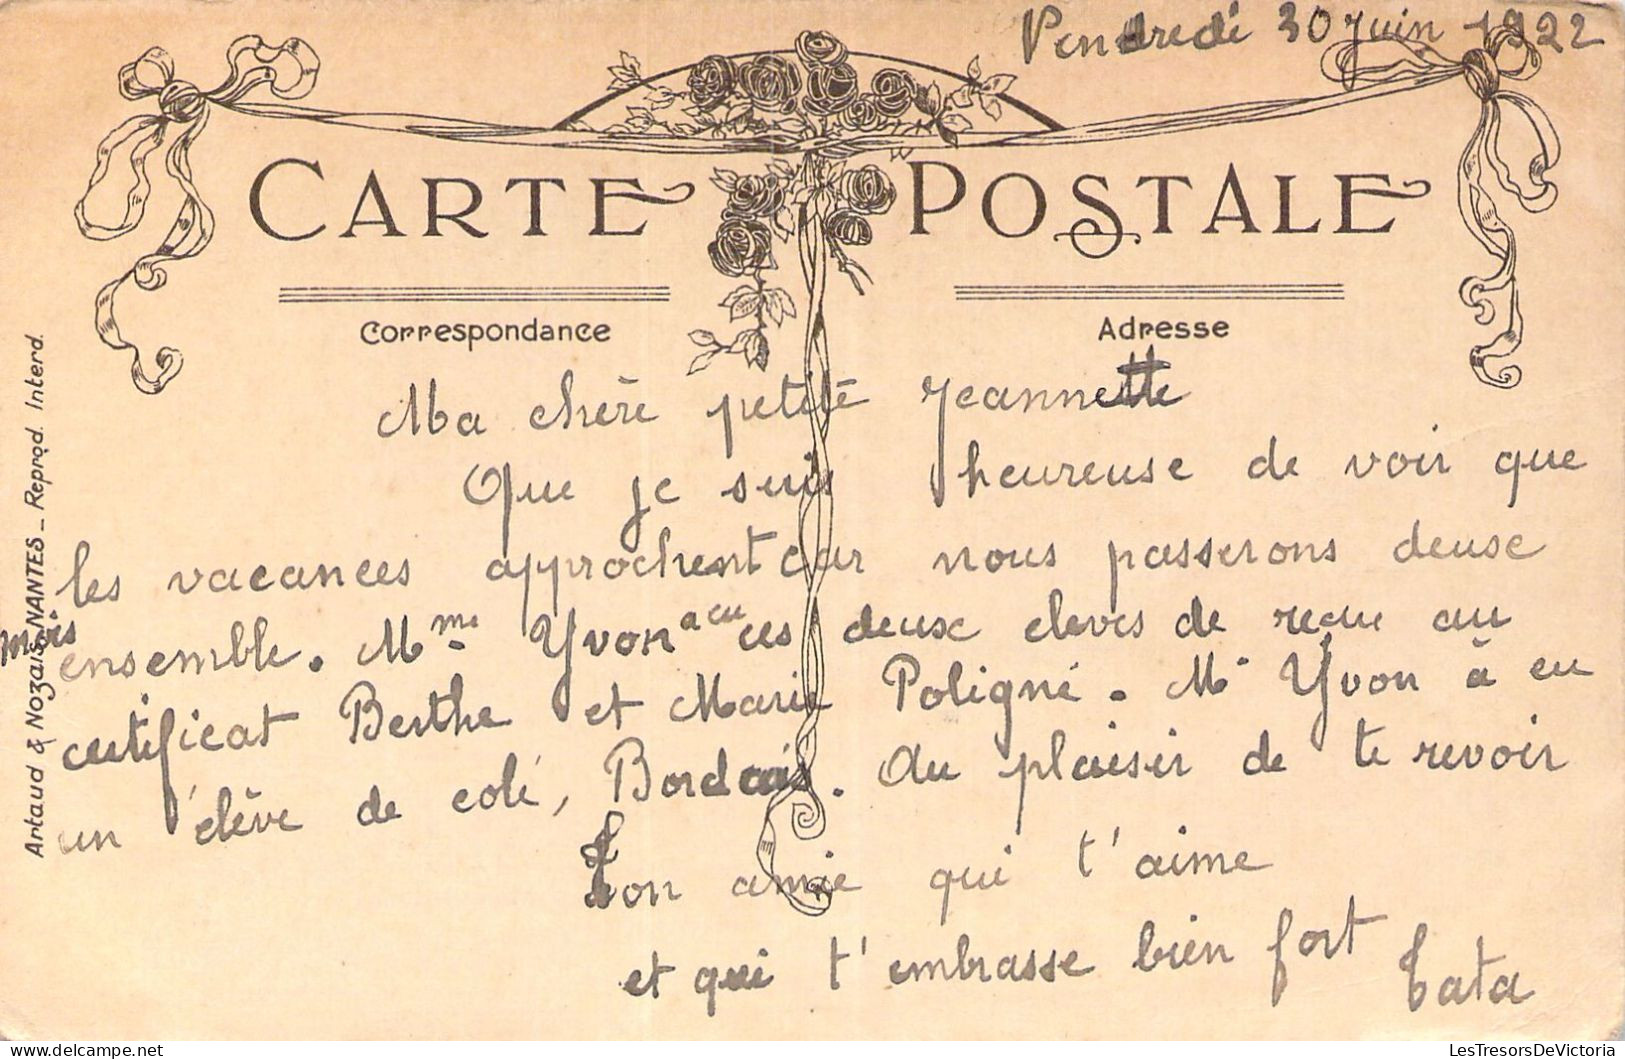 Vendredi 30 Juin 1922
CARTE POSTALE
Correspondance
Adresse
Ma chère petite Jeannette
Que je suis heureuse de voir que
les vacances approchent car nous passerons deuse
mois
ensemble. Mme Yvon a eu ces deuse eleves de reçue au
certificat Berthe et Marie Poligné. Mr Yvon à eu
un élève de colé, Bordais. Au plaisir de te revoir
Ton amie qui t'aime
et qui t'embrasse bien fort Tata
Artaud & Nozais NANTES _ Reprod. Interd.
LesTresorsDeVictoria
delcampe.net